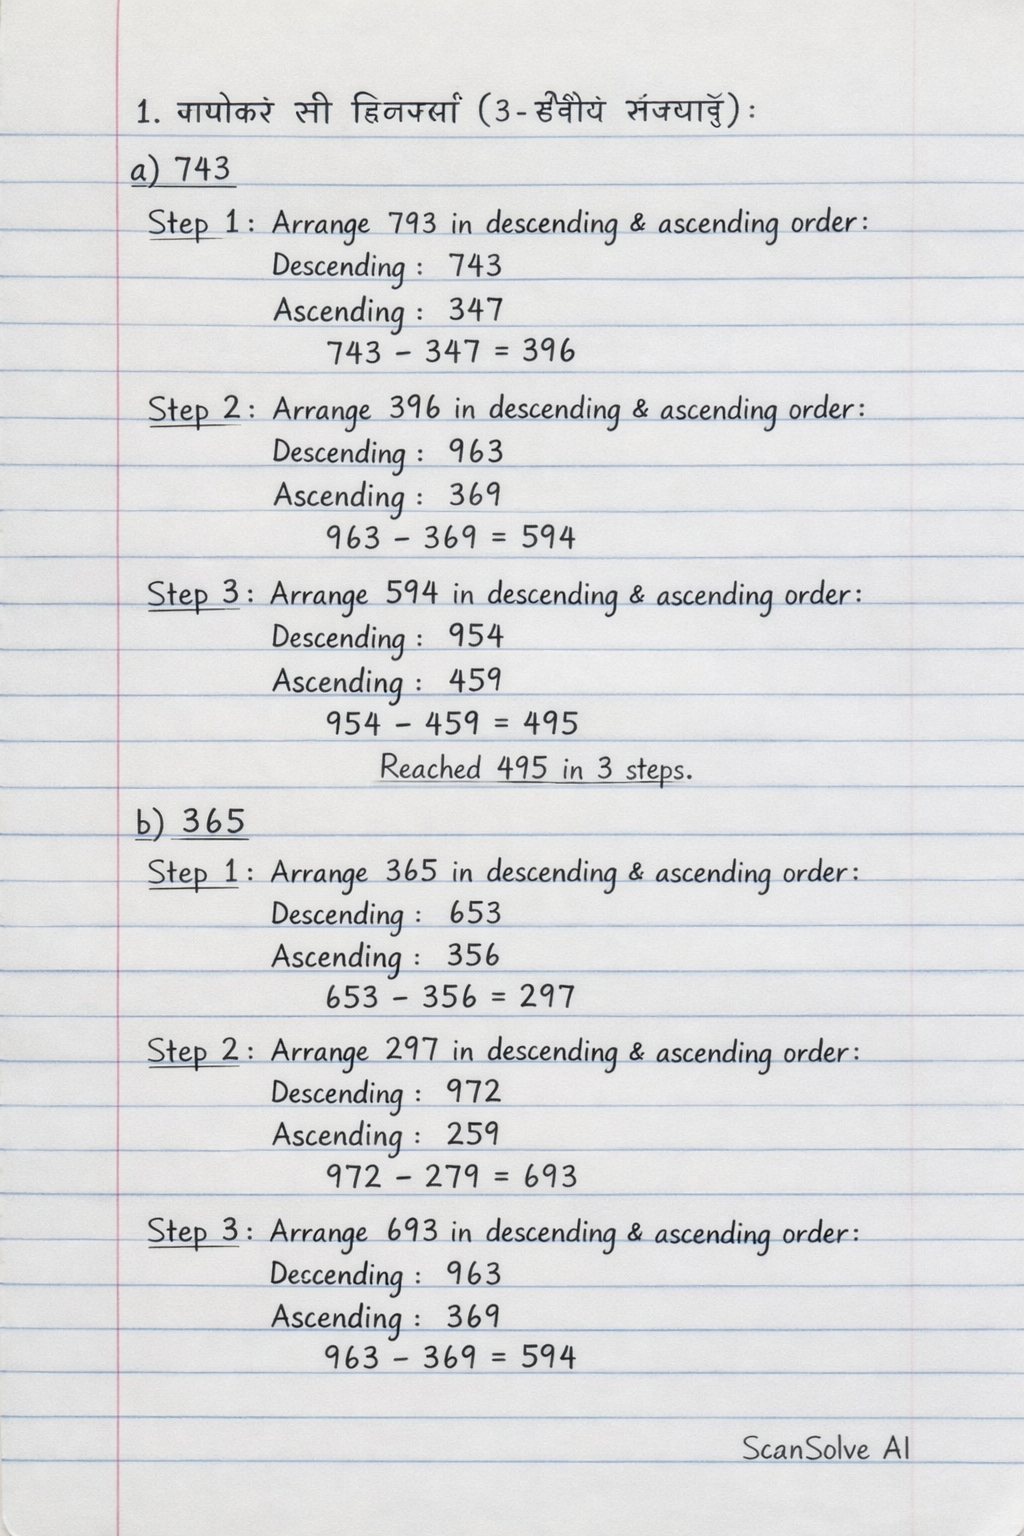 1. वायोकरं सी (3-
a) 743
Step 1: Arrange 793 in descending & ascending order:
Descending : 743
Ascending : 347
743 - 347 = 396
Step 2: Arrange 396 in descending & ascending order:
Descending : 963
Ascending : 369
963 - 369 = 594
Step 3: Arrange 594 in descending & ascending order:
Descending : 954
Ascending : 459
954 - 459 = 495
Reached 495 in 3 steps.
b) 365
Step 1: Arrange 365 in descending & ascending order:
Descending : 653
Ascending : 356
653 - 356 = 297
Step 2: Arrange 297 in descending & ascending order:
Descending : 972
Ascending : 259
972 - 279 = 693
Step 3: Arrange 693 in descending & ascending order:
Deccending : 963
Ascending : 369
963 - 369 = 594
ScanSolve AI